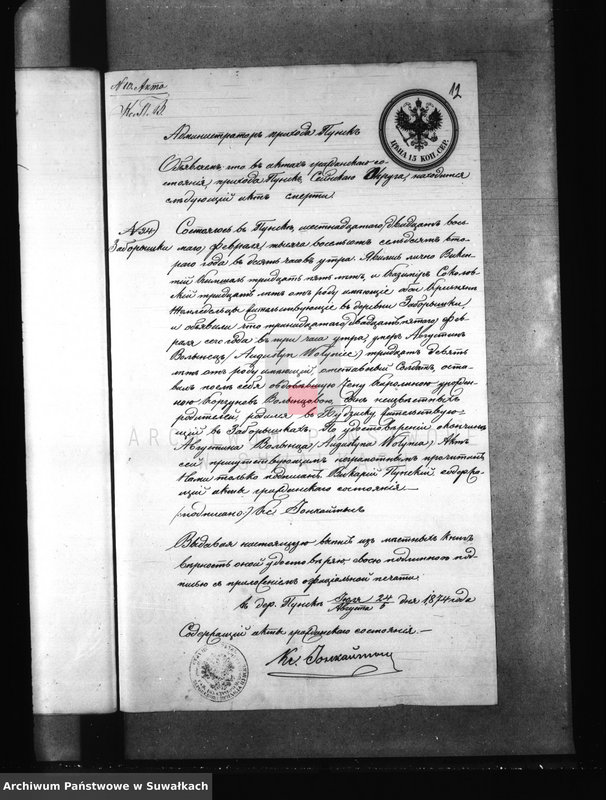 N 10. Акта
12
ЦѢНА 15 КОП. СЕР.
Администраторъ прихода Пунскъ
Объявляетъ что въ актахъ гражданскаго со-
стоянія прихода Пунскъ, Сейнскаго Округа, находится
слѣдующій актъ смерти
N 34)
Заборышки
Состоялось въ Пунскѣ шестнадцатаго /двадцать вось-
маго/ февраля тысяча восемьсотъ семьдесятъ вто-
раго года въ десять часовъ утра. Явились лично Викен-
тій тридцать пять лѣтъ, и Казиміръ Соколов-
скій тридцать лѣтъ отъ роду имѣющіе оба Крестьяне
Земледельцы жительствующіе въ деревни Заборышки,
и объявили что тринадцатаго /двадцать пятаго/ фев-
раля сего года въ три часа утра, умеръ Августинъ
Волынецъ /Augustyn Wołyniec/ тридцать девять
лѣтъ отъ роду имѣющій, отставный Солдатъ оста-
вивъ послѣ себя овдовѣвшую жену Каролину урожден-
ную Волынцовою, сынъ неизвѣстныхъ
родителей родился въ жительствую-
щій въ Заборышкахъ. По удостовереніи о кончинѣ
Августина Волынца /Augustyna Wołynca/ Актъ
сей присутствующимъ неграмотнымъ прочитанъ
Нами только подписанъ. Викарій Пунскій содержа-
щій акты гражданскаго состоянія.—
/подписано/ Кс. Іонкайтысъ
Выдавая настоящую изъ мѣстныхъ книгъ
вѣрность оной удостовѣряю своею подлинною под-
писью съ приложеніемъ официальной печати.
въ дер. Пунскъ Іюля 24 / Августа 5 дня 1874 года
Содержащій акты гражданскаго состоянія.—
Кс. Іонкайтысъ
Archiwum Państwowe w Suwałkach